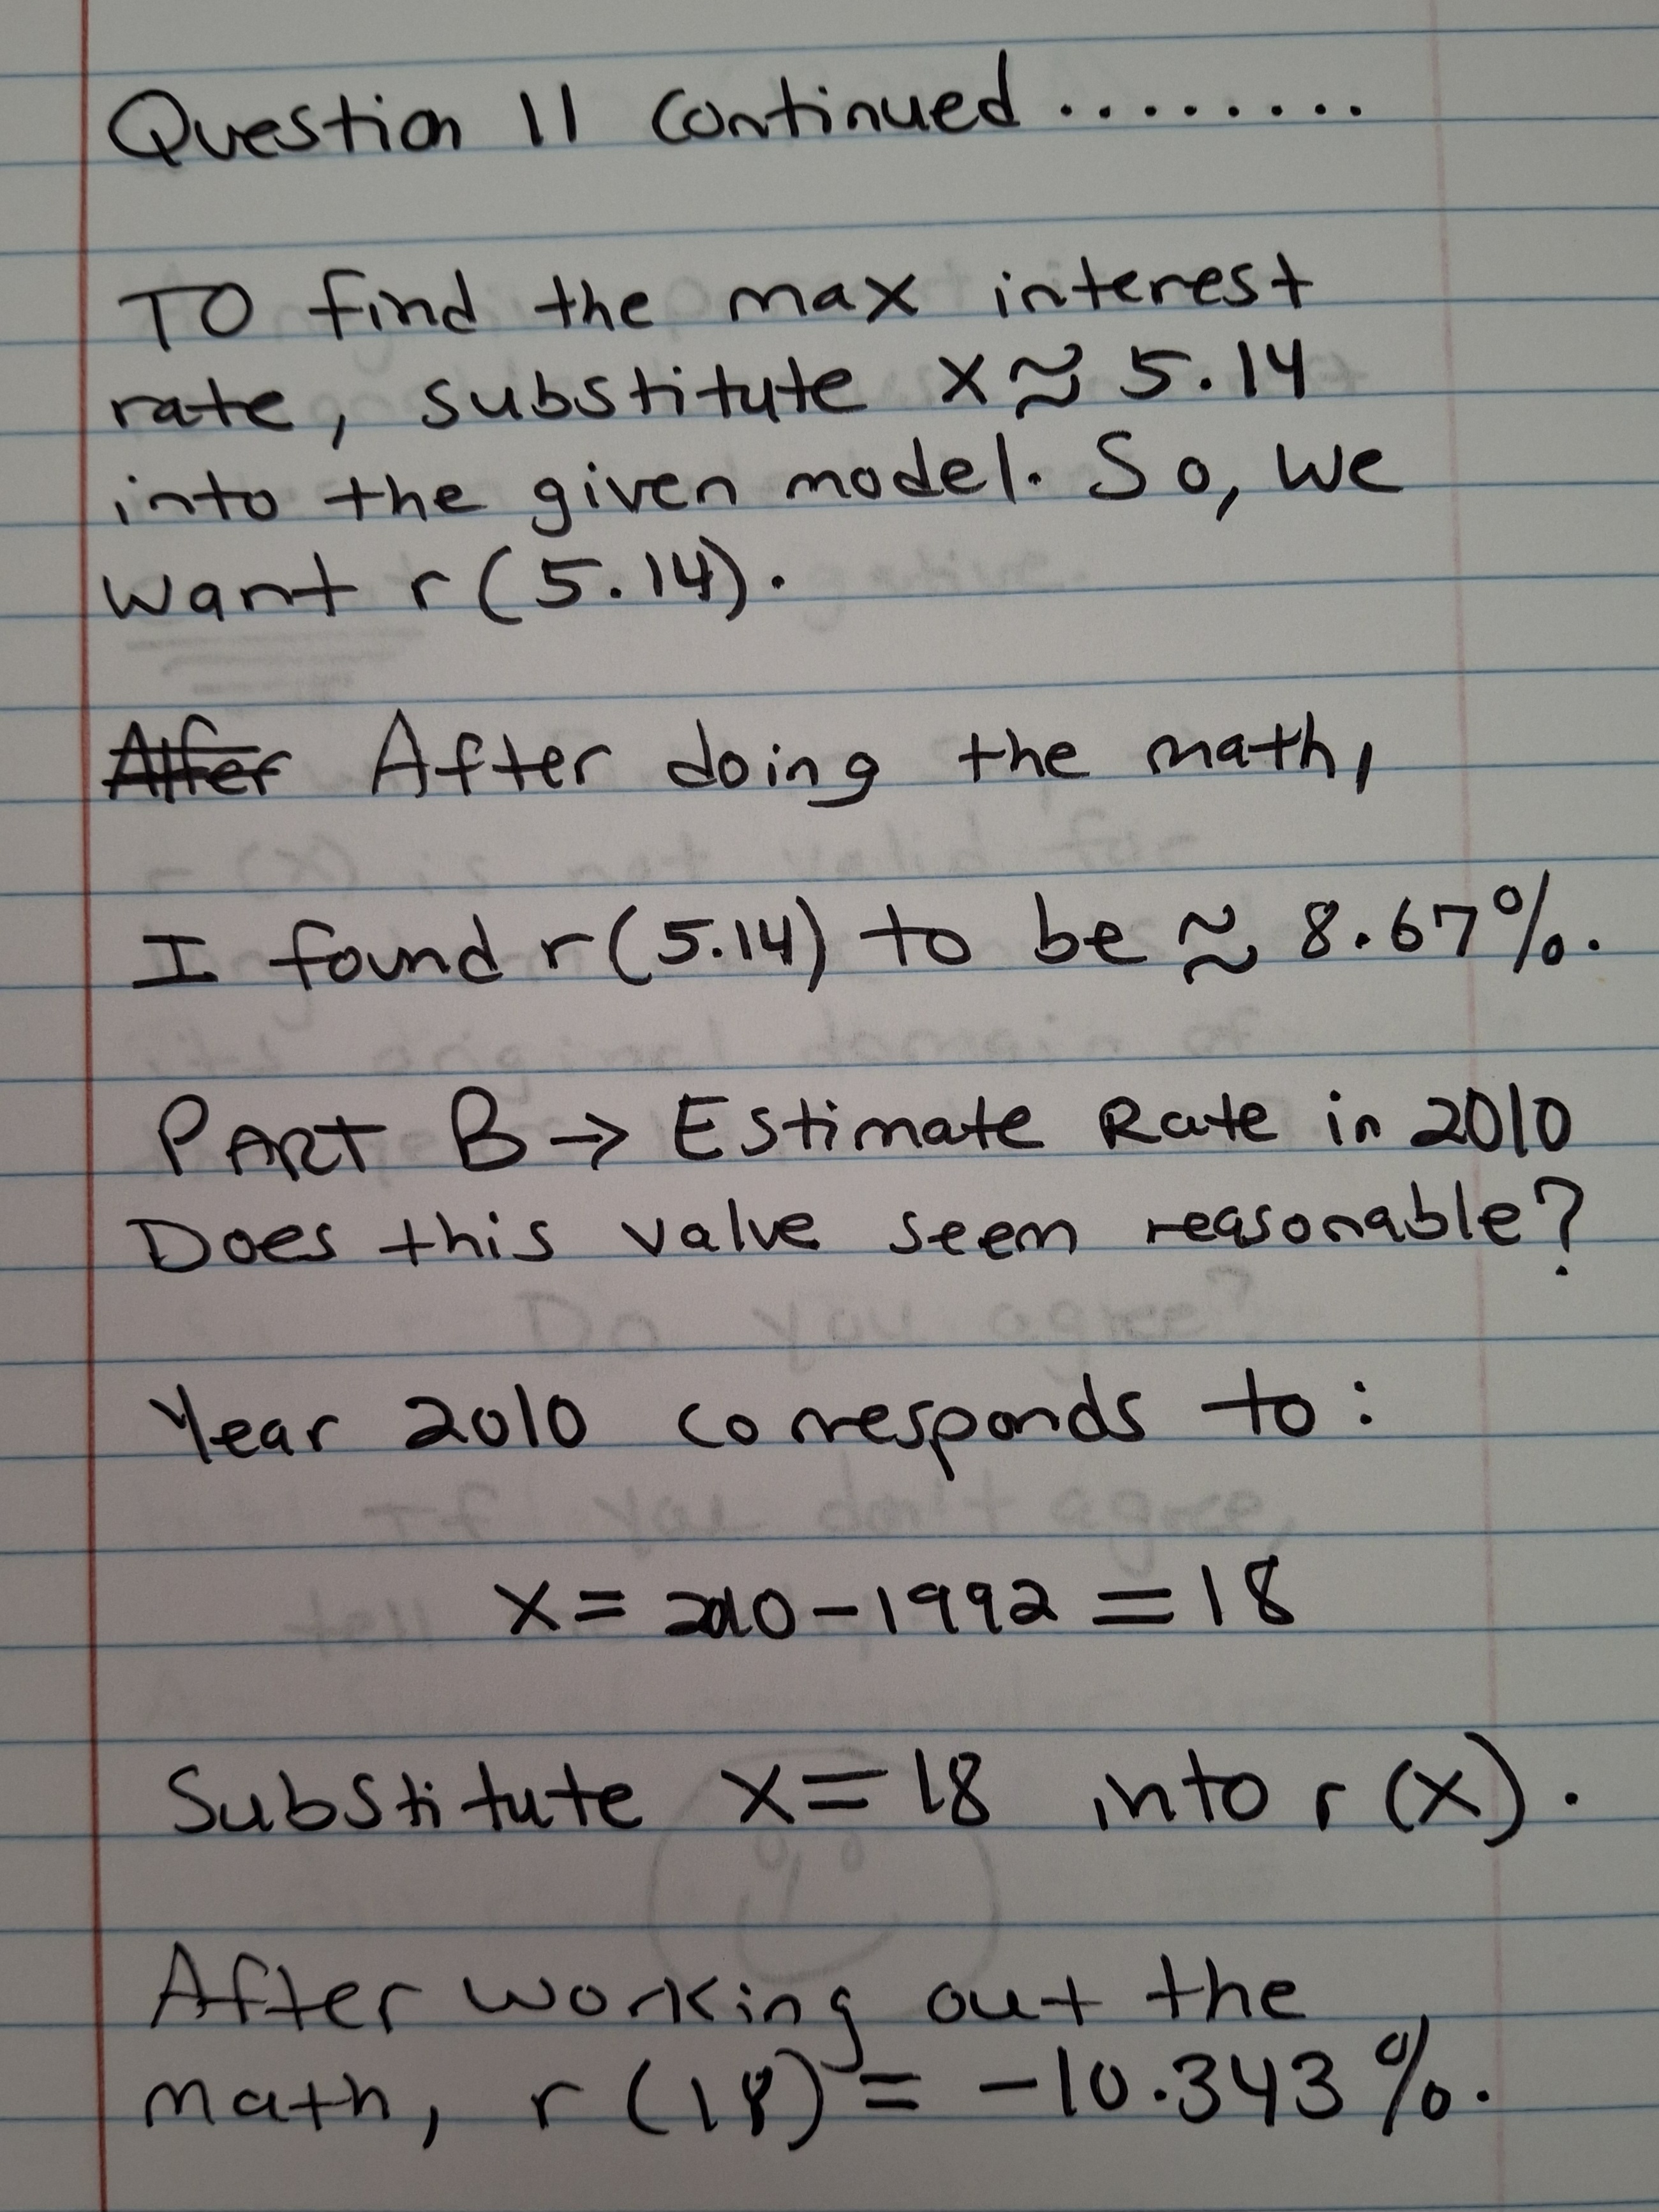 Question 11 Continued .........
TO find the max interest
rate, substitute x ≈ 5.14
into the given model. So, we
want r(5.14).
After After doing the math,
I found r(5.14) to be ≈ 8.67%.
PART B → Estimate Rate in 2010
Does this value seem reasonable?
Year 2010 corresponds to:
x = 2010 - 1992 = 18
Substitute x = 18 into r(x).
After working out the
math, r(18) = -10.343%.